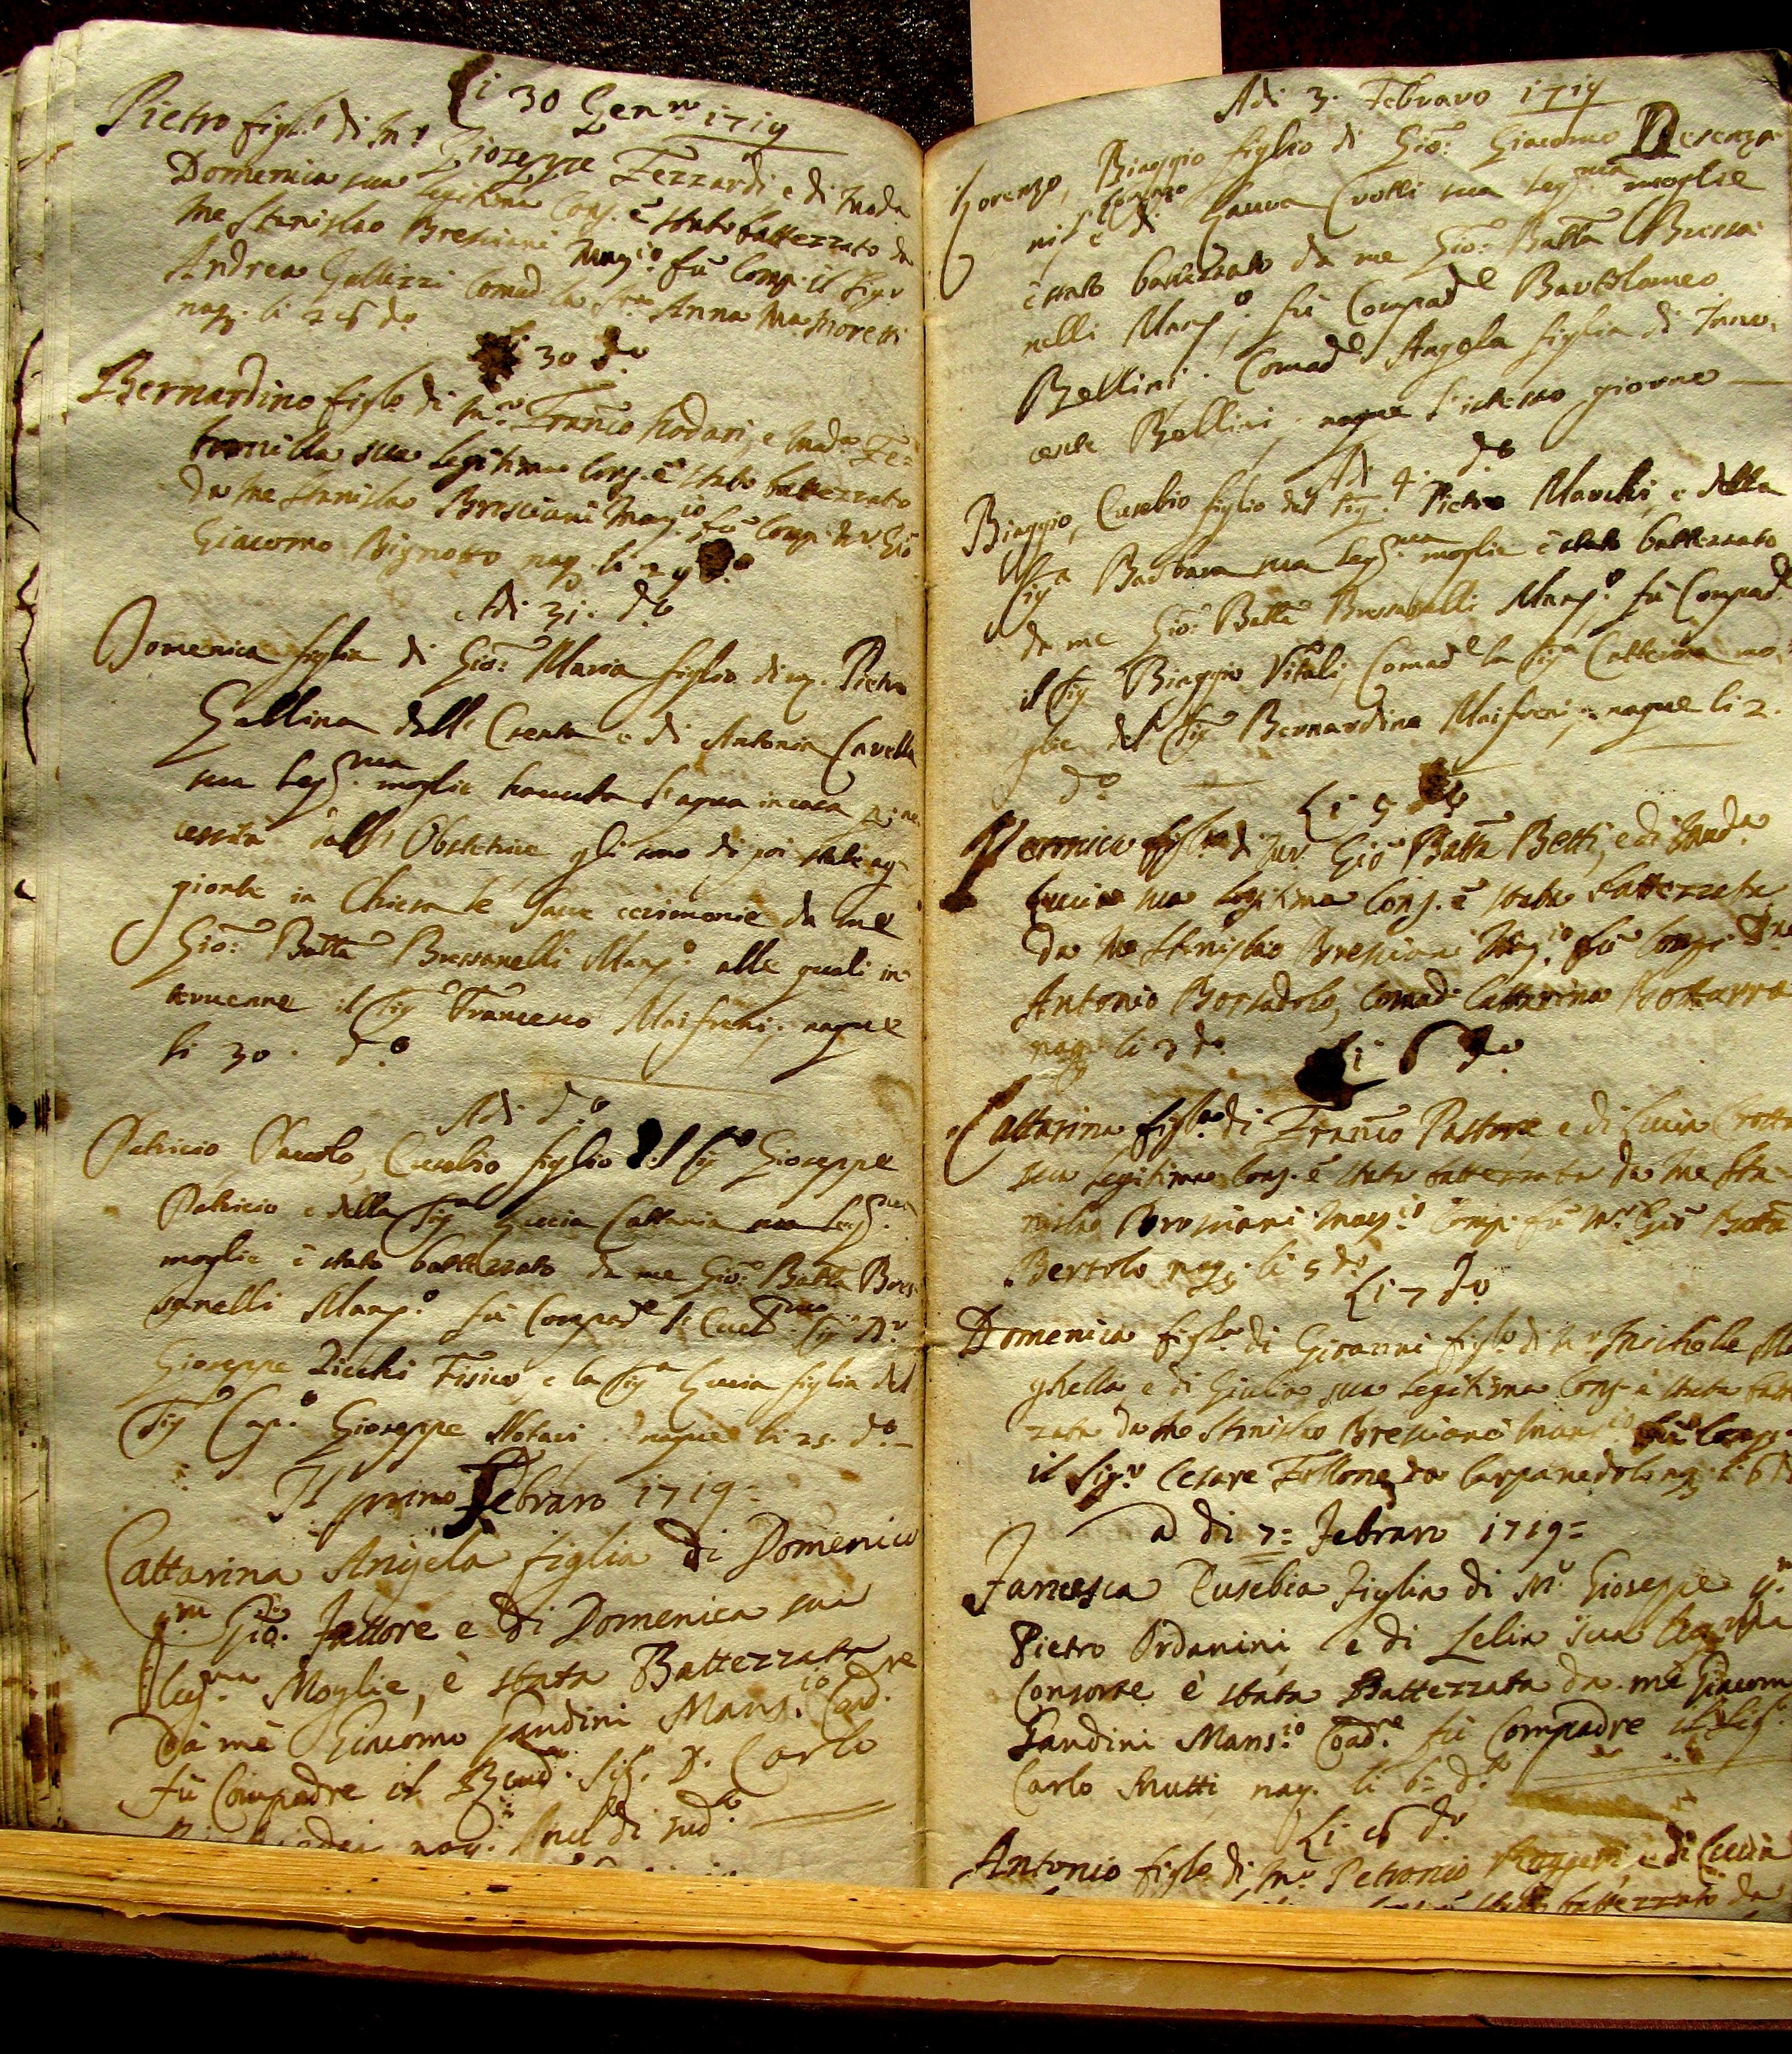 Li 30 Genro 1719
Pietro figlo di Mr Gioseppe Fezzardi, e di Mada
Domenica sua legitima Cons. è stato battezzato da
me Stanislao Bresciani Mansio. fù Comp. il Sigr
Andrea Comad la Sra Anna Ma Moretti
naq. li 26 do
30 do
Bernardino figlo di Mr Franco Rodari, e Mada Pe=
tronilla sua legitima Cons. è stato battezzato
da me Stanislao Bresciani Mansio fù Comp. Mr Gio
Giacomo Bignotto naq. li 29 do
Adi 31. do
Domenica figlia di Gio: Maria figlio di m. Pietro
Gallina dell' e di Antonia Cavella
sua legma moglie havuta l'aqua in casa p ne
cessità dall' Obstetrice gli sono di poi state ag
gionte in Chiesa le sacre cerimonie da me
Gio: Batta Bressanelli Mansio, alle quali in
tervenne il Sigr Francesco Maifreni, naque
li 30. do
Adi do
Patricio Paolo, Eusebio figlio del Sigr Gioseppe
Patricio e della Siga Lucia Cattania sua legma
moglie è stato battezzato da me Gio: Batta Bres
sanelli Mansio fù Compade l' Sigr Dr
Gioseppe Zicchi Fisico, e la Siga Lucia figlia del
Sigr Capo Gioseppe Notari. naque li 25. do
Il primo Febraro 1719=
Cattarina Angela figlia di Domenico
qm Gio. Fattore e di Domenica sua
legma Moglie, è stata Battezzata
Dà mè Giacomo Gandini Mansio Coadre
fù Compadre il Rendo Sigr D. Carlo
naq.
Adi 3. Febraro 1719
Lorenzo, Biaggio figlio di Gio: Giacomo Desenza
ni, e di Laura Crotti sua legma moglie
è stato battezzato da me Gio: Batta Bressa
nelli Mansio, fù Compade Bartolameo
Bellini. Comade Angela figlia di Inno
cente Bellini, naque l'istesso giorno
Adi 4. do
Biaggio, Eusebio figlio del Sig. Pietro Marchi, e della
Siga Barbara sua legma moglie è stato battezzato
da me Gio: Batta Bressanelli Mansio fù Compade
il Sigr Biaggio Vitali, Comade la Siga Catterina mo
glie del Sigr Bernardino Maifreni, naque li 2.
do
Li 5 do
Veronica figlia di Mr Gio Batta Betti, e di Mada
Lucia sua legitima Cons. è stata battezzata
da me Stanislao Bresciani Mansio. fù Comp.
Antonio Borsadolo, Comad. Cattarina
naq. li 3 do
Li 6 do
Cattarina figla di Franco Pastore e di Lucia Crotta
sua legitima Cons. è stata battezzata da me Sta
nislao Bresciani Mansio Comp. fù Mr Gio Batta
Bertolo naq. li 5 do
Li 7 do
Domenica figla di Giovanni figlo di Mr Michele
ghella e di Giulia sua legitima Cons. è stata batte
zata da me Stanislao Bresciani Mansio. fù Comp.
il Sigr Cesare da Carpanedolo naq. li 6 do
a di 7= Febraro 1719=
Francesca Eusebia Figlia di Mr Gioseppe qm
Pietro Ordanini, e di Lelia sua legma
Consorte è stata Battezzata da mè Giacomo
Gandini Mansio Coadre fù Compadre il Sigr
Carlo Mutti, naq. li 6= do
Li do
Antonio figlo di Mr Petronio e di Lucia
battezzato da